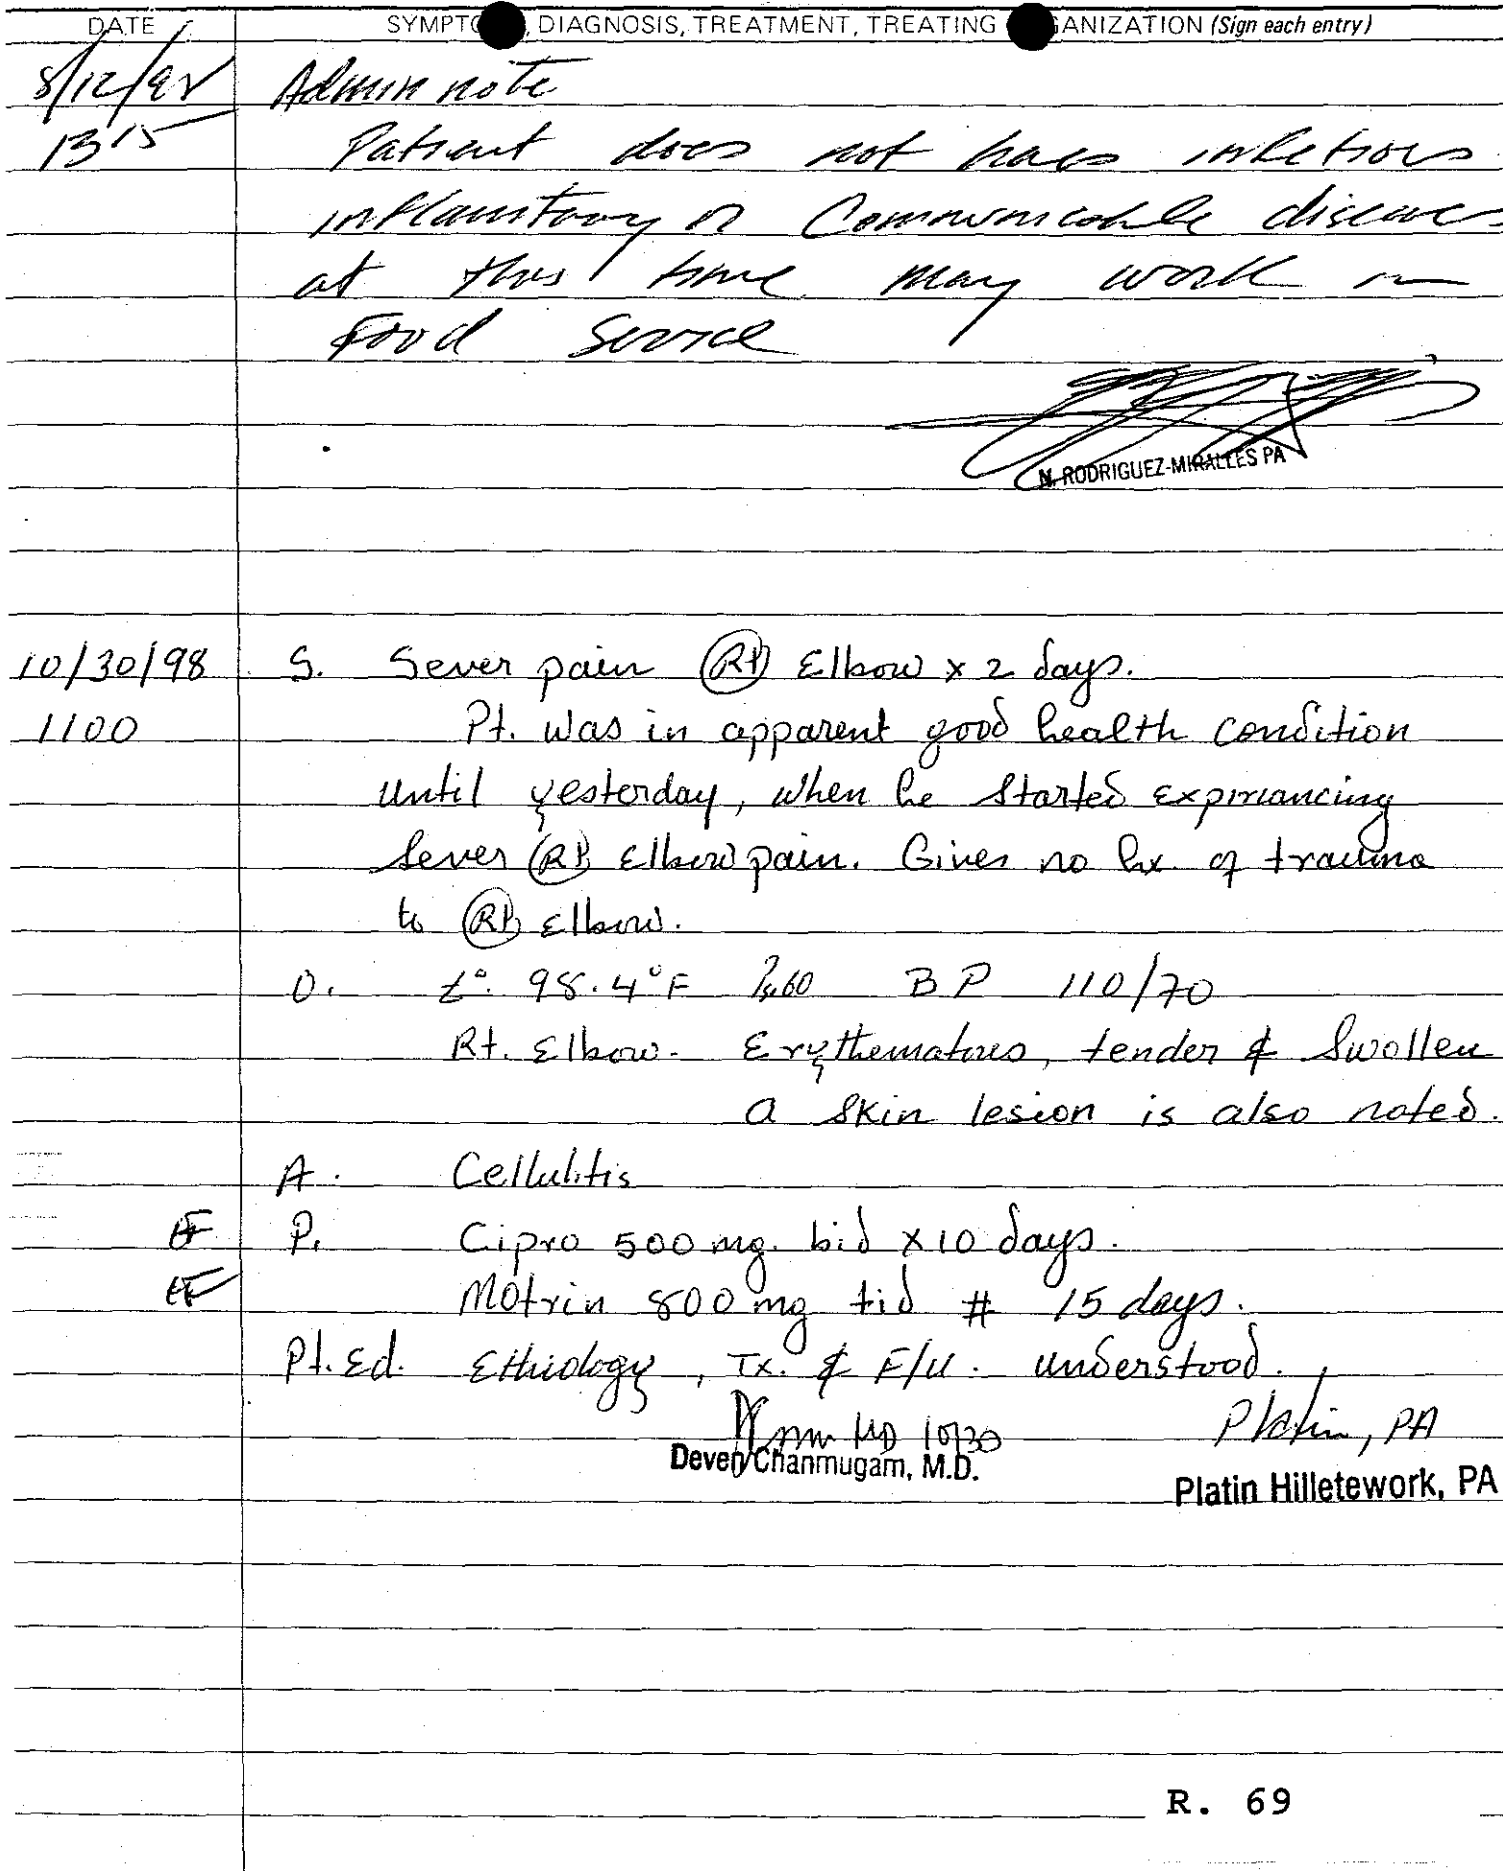 DATE SYMPTO , DIAGNOSIS, TREATMENT, TREATING GANIZATION (Sign each entry)
8/12/98 Admin note
1315 Patient does not have infetious
inflamitory or Communicable diseases
at this time may work in
Food Service
N. RODRIGUEZ-MIRALLES PA
10/30/98 S. Sever pain (Rt) Elbow x 2 days.
1100 Pt. was in apparent good health condition
until yesterday, when he started expriancing
sever (Rt) Elbow pain. Gives no hx. of trauma
to (Rt) Elbow.
O. t° 98.4°F Ps60 BP 110/70
Rt. Elbow. Erythematous, tender & Swollen
a skin lesion is also noted.
A. Cellulitis
P. Cipro 500 mg. bid x 10 days.
Motrin 800 mg tid # 15 days.
Pt. Ed. Ethiology, Tx. & F/U. understood.
MD 10/30 Platin, PA
Deven Chanmugam, M.D.
Platin Hilletework, PA
R. 69